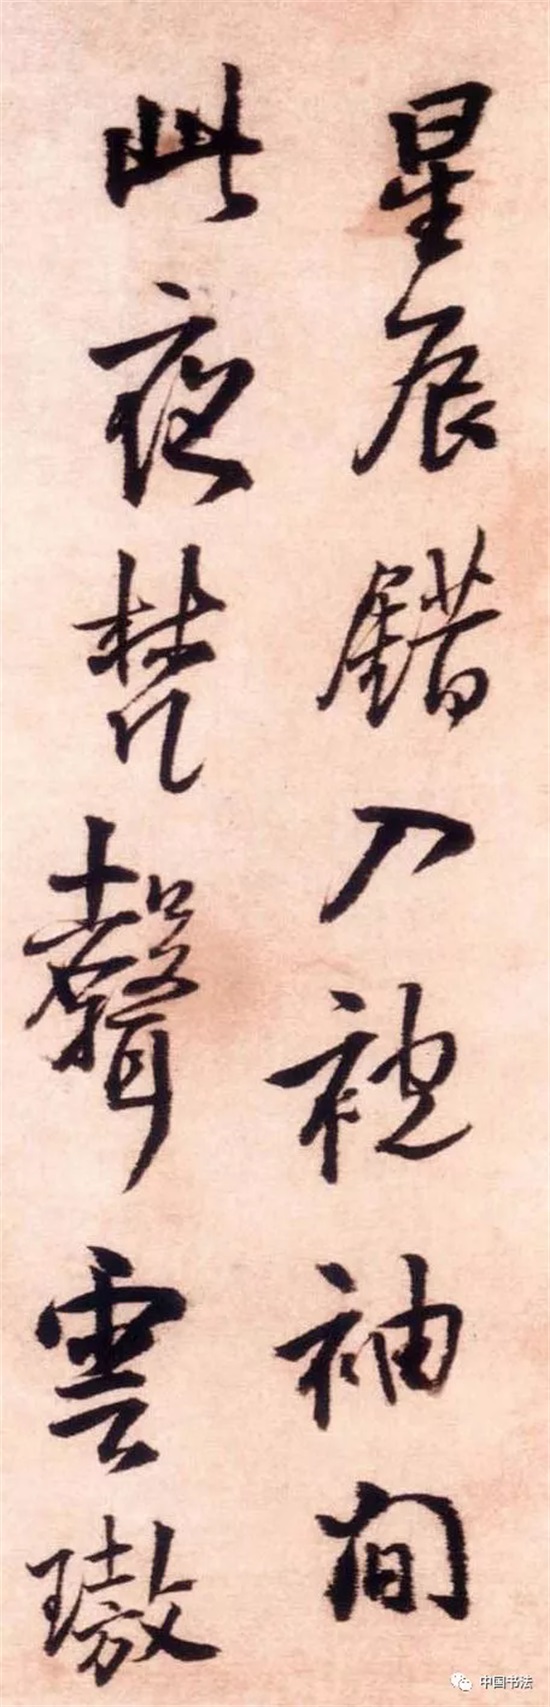 星辰錯入袍袖間
此夜梵聲雲璈
中国书法